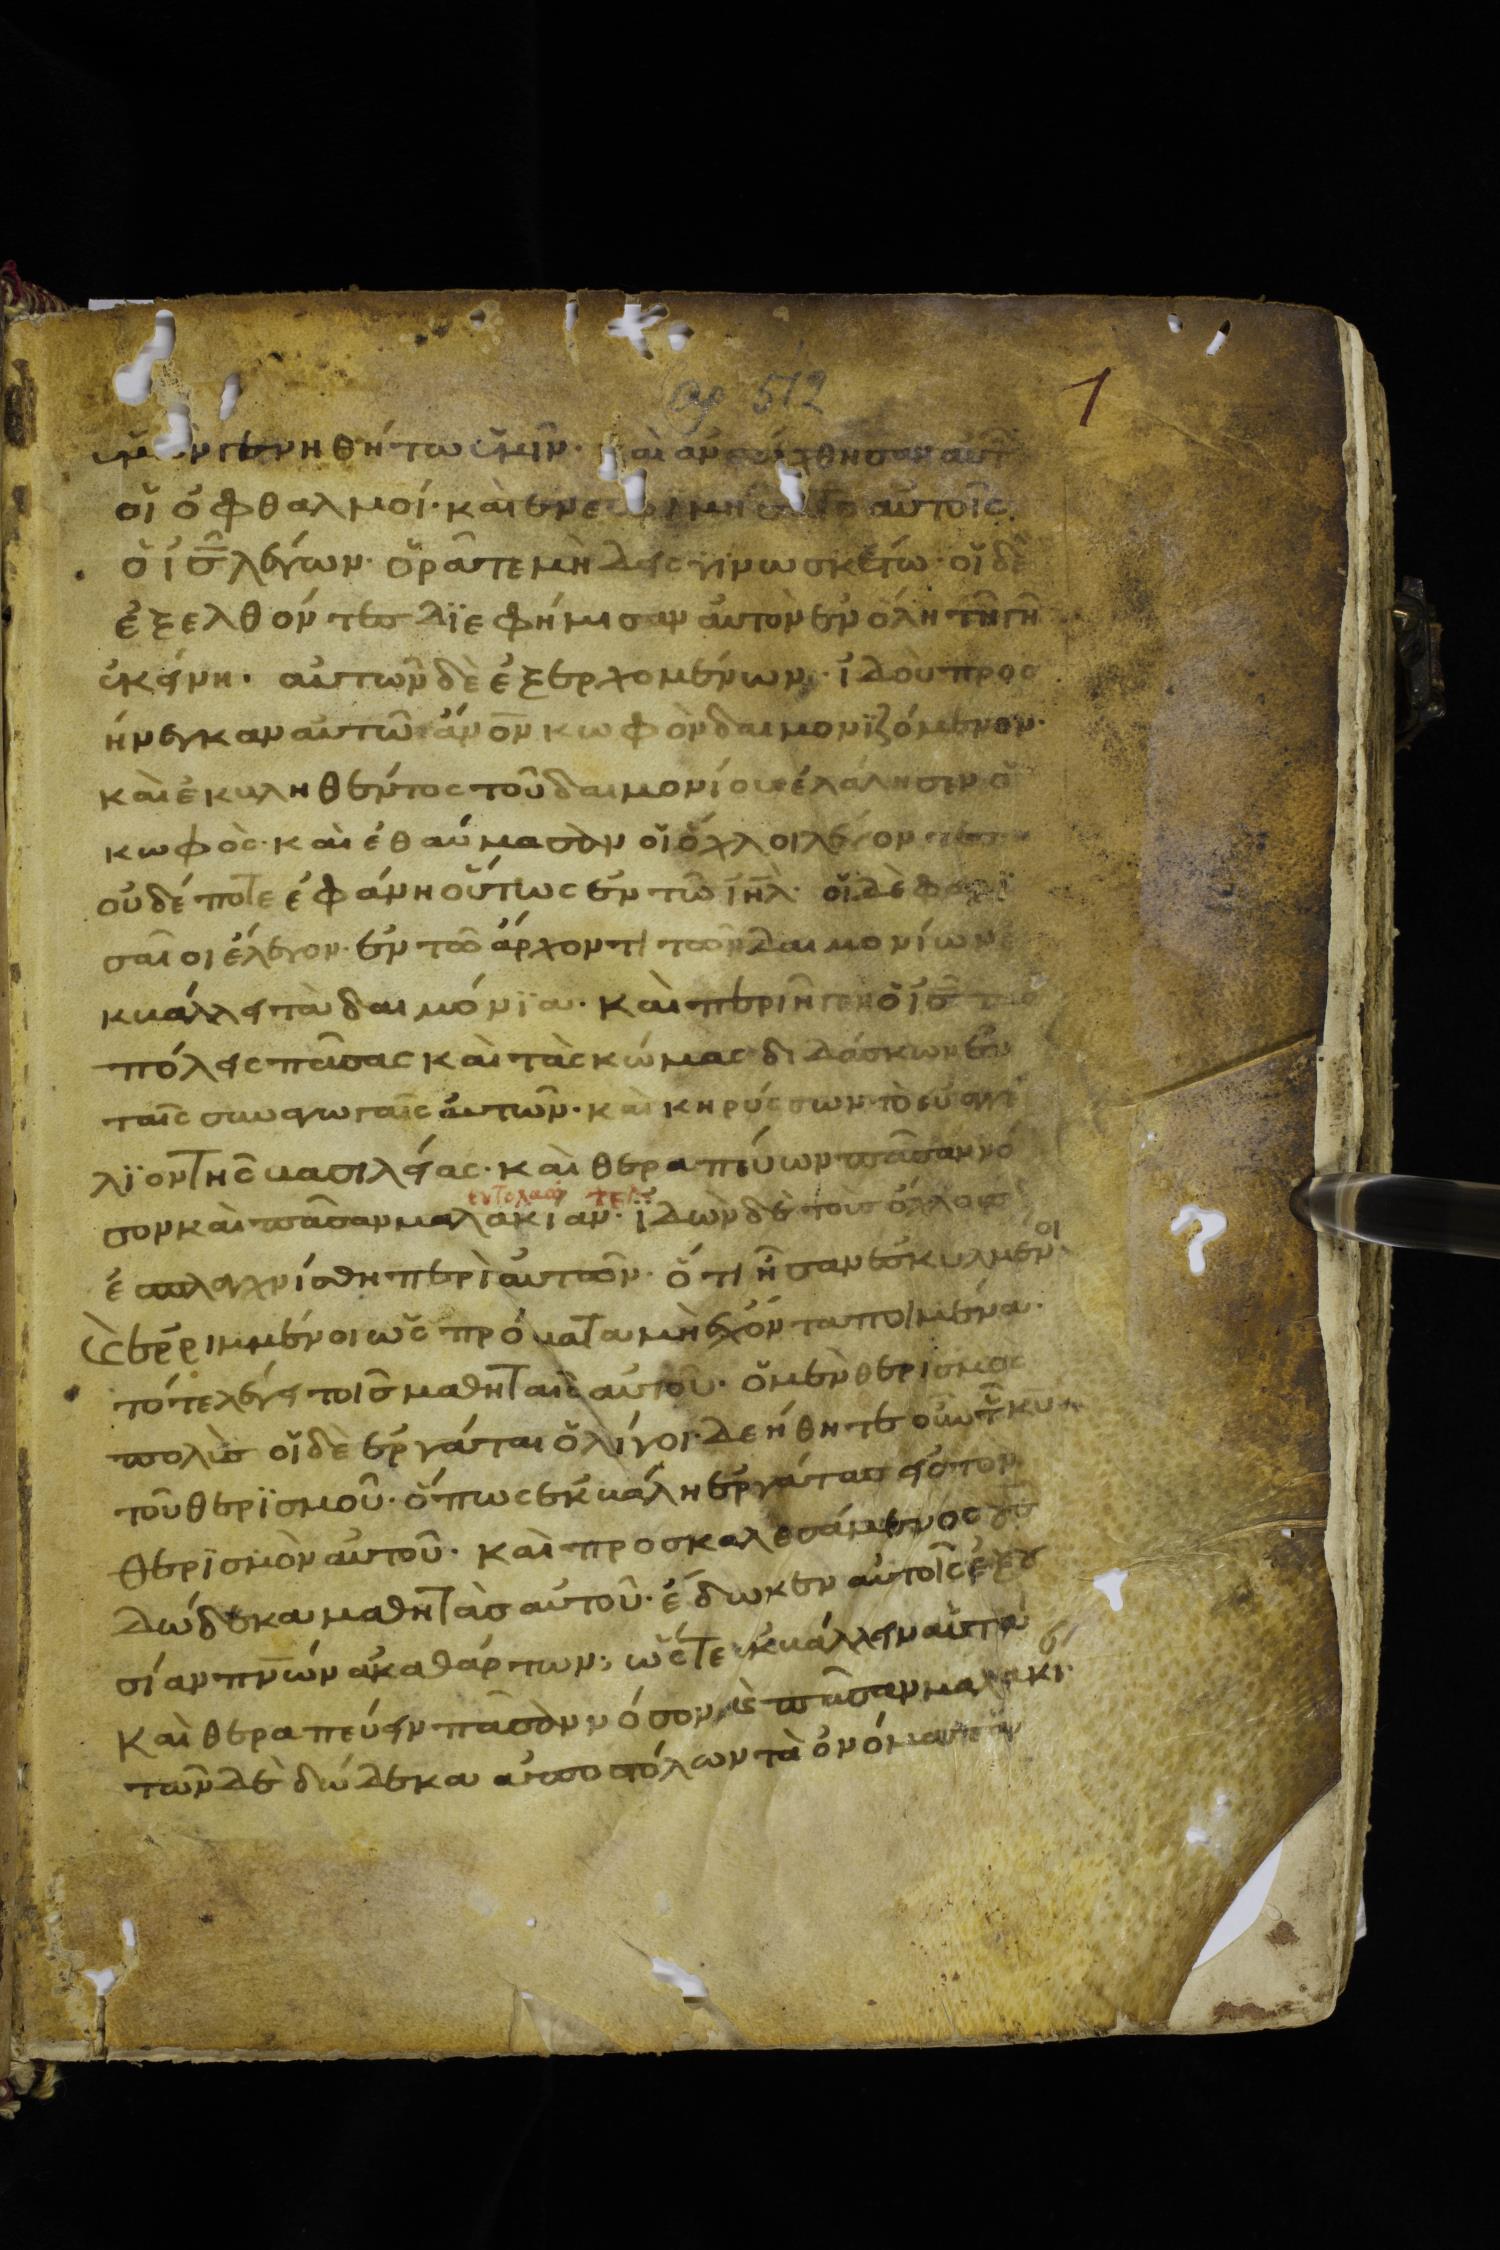 Cφ 512
1
ὑμῶν γενηθήτω ὑμῖν· καὶ ἀνεώχθησαν αὐτ
οἱ ὀφθαλμοί· καὶ ἐνε αὐτοῖς
ὁ ις λέγων· ὁρᾶτε μηδεὶς γινωσκέτω· οἱ δὲ
ἐξελθόντες διεφήμισαν αὐτὸν ἐν ὅλη τῆ γῆ
ἐκείνη· αὐτῶν δὲ ἐξερχομένων· ἰδοὺ προσ
ήνεγκαν αὐτῶ ἀνον κωφὸν δαιμονϊζόμενον·
καὶ ἐκβληθέντος τοῦ δαιμονίου ἐλάλησεν ὁ
κωφὸς· καὶ ἐθαύμασαν οἱ ὄχλοι λέγοντες
οὐδέποτε ἐφάνη οὕτως ἐν τῶ ιηλ· οἱ δὲ φαρϊ
σαῖοι ἔλεγον· ἐν τῶ ἄρχοντι τῶν δαιμονίων ἐ
κβάλλει τὰ δαιμόνϊα· καὶ περιῆγεν ὁ ις τὰς
πόλεις πάσας καὶ τὰς κώμας διδάσκων ἐν
ταῖς συναγωγαῖς αὐτῶν· καὶ κηρύσσων τὸ εὐαγγέ
λϊον τῆς βασιλείας· καὶ θεραπεύων πᾶσαν νό
σον καὶ πᾶσαν μαλακίαν· ἰδὼν δὲ τοὺς ὄχλους
ἐσπλαγχνίσθη περὶ αὐτῶν· ὅτι ἦσαν ἐσκυλμένοι
καὶ ἐρριμμένοι ὡς πρόβατα μὴ ἔχοντα ποιμένα·
τότε λέγει τοῖς μαθηταῖς αὐτοῦ· ὁ μὲν θερισμὸς
πολὺς οἱ δὲ ἐργάται ὀλίγοι· δεήθητε οὖν τοῦ κυ
τοῦ θερϊσμοῦ· ὅπως ἐκβάλη ἐργάτας εἰς τὸν
θερϊσμὸν αὐτοῦ· καὶ προσκαλεσάμενος τοὺς
δώδεκα μαθητὰς αὐτοῦ· ἔδωκεν αὐτοῖς ἐξου
σίαν πνων ἀκαθάρτων· ὥστε ἐκβάλλειν αὐτά
καὶ θεραπεύειν πᾶσαν νόσον καὶ πᾶσαν μαλακι
τῶν δὲ δώδεκα ἀποστόλων τὰ ὀνόματα